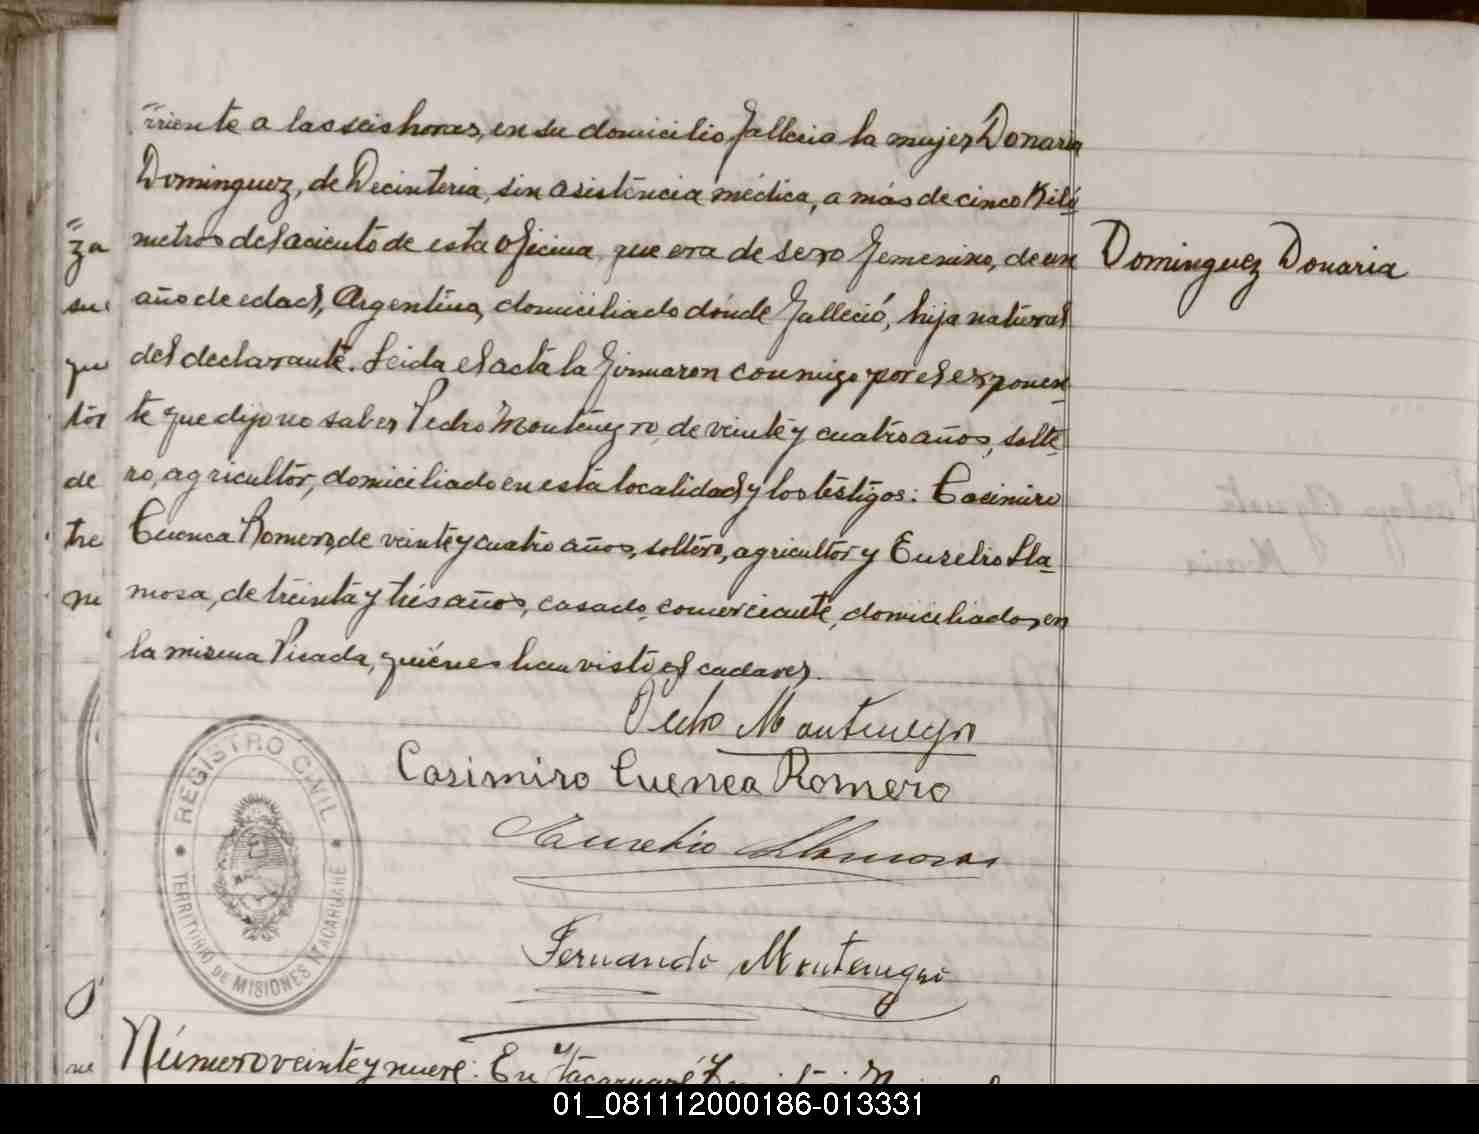 rriente a las seis horas, en su domicilio falleció la mujer Donaria
Dominguez, de Decinteria, sin asistencia médica, a más de cinco Kiló
metros del aciento de esta Oficina, que era de sexo femenino, de un
año de edad, Argentina, domiciliado donde falleció, hija natural
del declarante. Leida el acta la firmaron conmigo por el exponen
te que dijo no saber Pedro Montenegro, de veinte y cuatro años, solte
ro, agricultor, domiciliado en esta localidad y los testigos: Casimiro
Cuenca Romero, de veinte y cuatro años, soltero, agricultor y Eurelio Lla
mosa, de treinta y tres años, casado, comerciante, domiciliados en
la misma Picada, quiénes han visto el cadaver.
Dominguez Donaria
za
su
qu
tor
de
tre
ni
Pedro Montenegro
Casimiro Cuenca Romero
Eurelio Llamosas
Fernando Montenegro
REGISTRO CIVIL
TERRITORIO DE MISIONES ITACARUARÉ
Número veinte y nueve: En Itacaruaré, Territorio
01_081112000186-013331